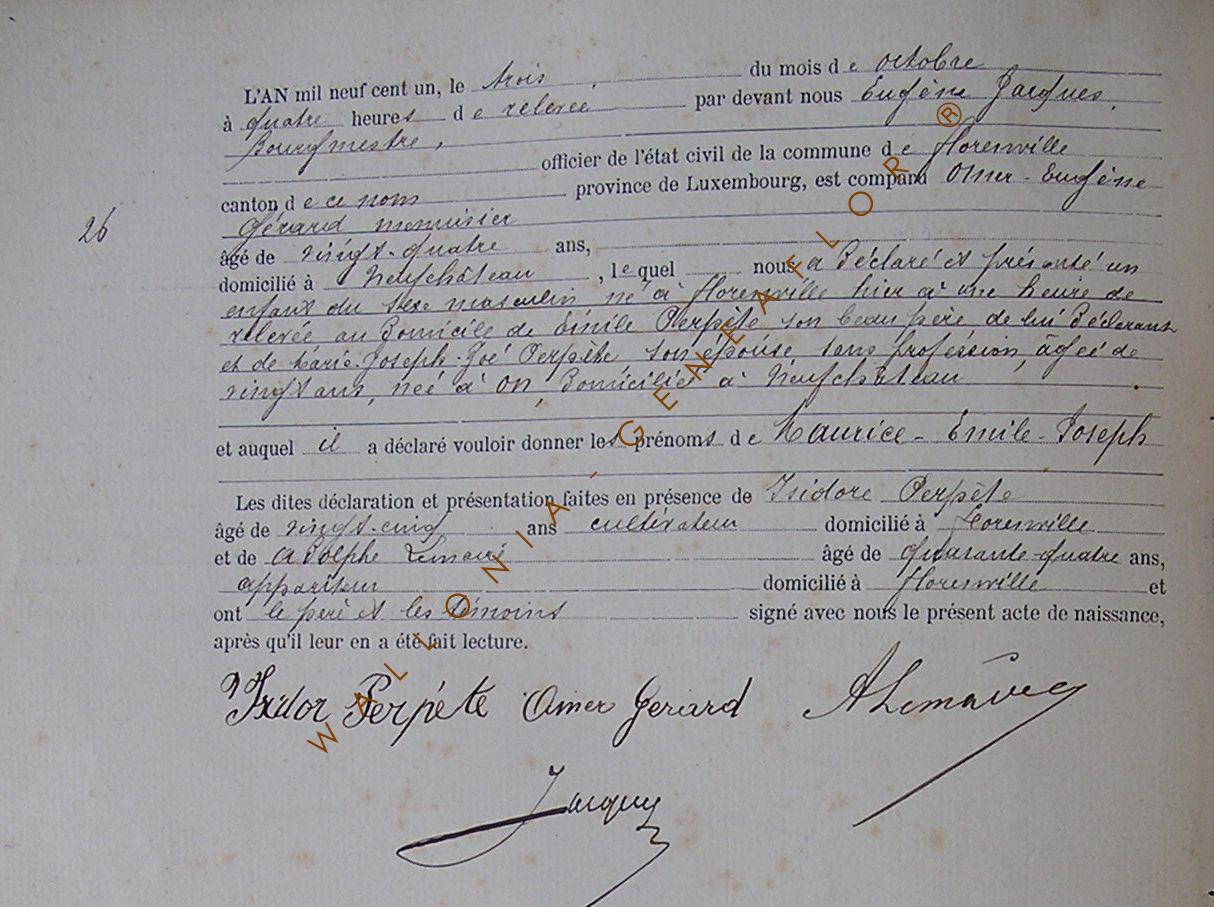 L'AN mil neuf cent un, le trois du mois de octobre
à quatre heures de relevée par devant nous Eugène Jacques,
Bourgmestre,
officier de l'état civil de la commune de Florenville
canton de ce nom province de Luxembourg, est comparu Omer-Eugène
26
Gérard menuisier
âgé de vingt-quatre ans,
domicilié à Neufchâteau, lequel nous a déclaré et présenté un
enfant du sexe masculin né à Florenville hier à une heure de
relevée au domicile de Emile Perpète son beau père de lui déclarant
et de Marie-Joseph-Zoé Perpète son épouse, sans profession, âgée de
vingt ans, née à On, domiciliée à Neufchâteau
et auquel il a déclaré vouloir donner les prénoms de Maurice-Emile-Joseph
Les dites déclaration et présentation faites en présence de Isidore Perpète
âgé de vingt-cinq ans cultivateur domicilié à Florenville
et de Adolphe âgé de quarante-quatre ans,
appariteur domicilié à Florenville et
ont le père et les témoins signé avec nous le présent acte de naissance,
après qu'il leur en a été fait lecture.
Isidor Perpéte Omer Gerard
Jacques
WALLONIA-GENEAFLOR®